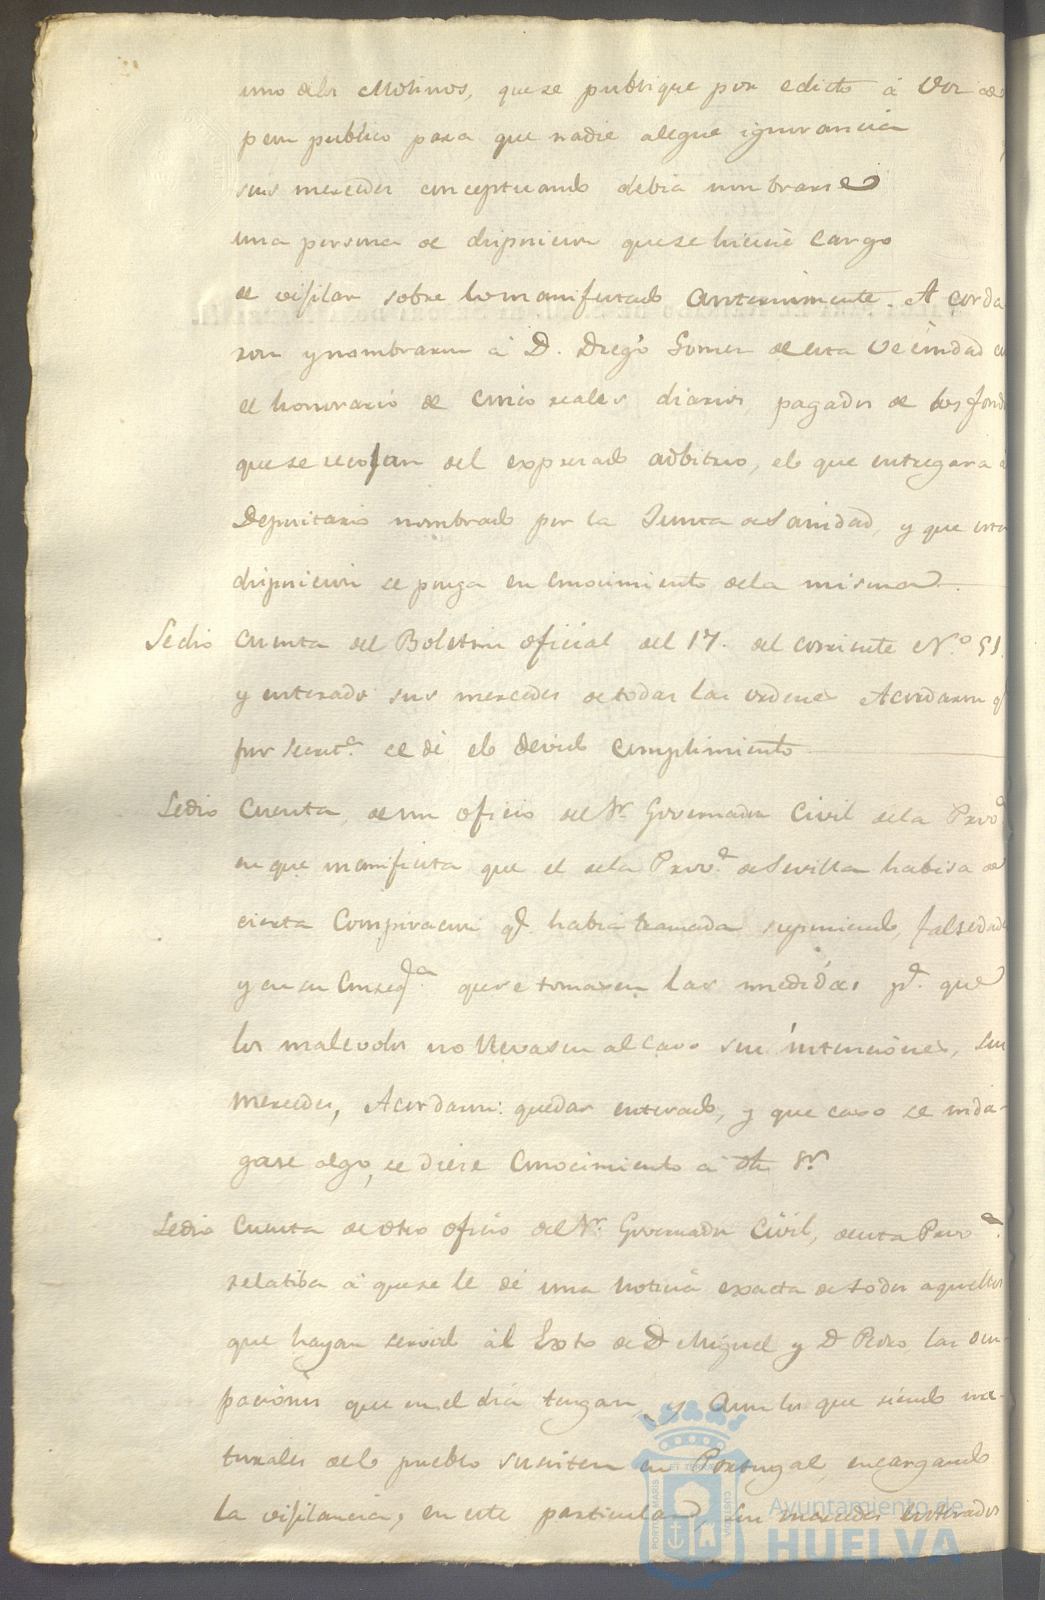 uno de los Molinos, que se publique por edicto á Voz de
pon publico para que nadie alegue ignorancia
sus mercedes conceptuando debia nombrarse
una persona de disposicion que se hiciese cargo
de visilar sobre lo manifestado anteriormente. Acorda
ron y nombraron á D. Diego Gomez de esta Vecindad con
el honorario de cinco reales diarios pagados de los fond
que se recojan del expresado adbitrio, el que entregara a
Depositario nombrado por la Junta de Sanidad, y que esta
disposicion se ponga en conocimiento de la misma
Se dio cuenta del Boletin oficial del 17. del corriente N.º 51.
y enterados sus mercedes de todas las ordenes Acordaron q
por Secret.ª se dé el devido cumplimiento
Se dio Cuenta, de un oficio del Sr. Governador Civil de la Prov.ª
en que manifiesta que el de la Prov.ª de Sevilla habisa de
cierta Conspiracion q.e habia tramada suponiendo, falsedad
y en su Conseq.ª que se tomasen las medidas p.ª que
los malevolos no llevasen al cavo sus intenciones, sus
mercedes, Acordaron: quedar enterados, y que caso se inda-
gase algo, se diese Conocimiento á dho Sr.
Se dio Cuenta de otro oficio del Sr. Governador Civil, de esta Prov.ª
relatiba á que se le dé una noticia exacta de todos aquellos
que hayan servido al Exto de D. Miguel y D. Pedro, las ocu-
paciones que en el dia tengan, y Aun los que siendo na-
turales de lo pueblo susisten en Portugal encargando
la visilancia, en este particular, sus mercedes enterados
Ayuntamiento de
HUELVA